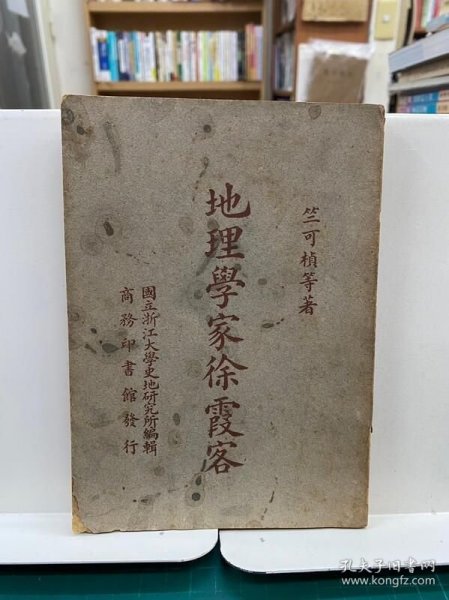 竺可楨等著
地理學家徐霞客
國立浙江大學史地研究所編輯
商務印書館發行
孔夫子旧书网
www.kongfz.com